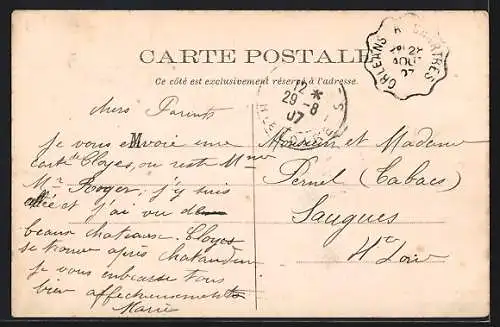 CARTE POSTALE
Ce côté est exclusivement réservé à l'adresse.
ORLEANS A CHARTRES
28
AOUT
07
12 *
29-8
07
chers Parents
Je vous envoie une
carte de Cloyes, ou reste Mme
Mr Roger; j'y suis
allée et j'ai vu de
beaux chateaux. Cloyes
se trouve après chateaudun
je vous embrasse tous
bien affectueusement
Marie
Monsieur et Madame
Pernel (Tabacs)
Saugues
Hte Loire